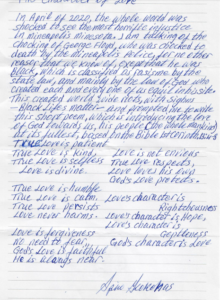 The Character of Love
In April of 2022, the whole world was
shocked to see the most horrific injustice
in Minneapolis Minnesota. I am talking of the
choking of George Floyd, who was choked to
death by the Minneapolis police, for no other
reason that we know of except that he was
Black, which is classified as racism by the
state law, and mainly by the law of God who
created each every one of us equal in his sight.
This created world wide riots, with signs
Black lives matter and prompted me to write
this short poem, which is introducing the love
of God towards us, his people (the whole mankind)
at its fullest, based on the Bible
TRUE Love is patient
True Love is kind Love is not envious
True Love is selfless True Love respects,
Love is divine. Love loves his own
God's Love protects.
True Love is humble
True Love is calm. Love's character is
True Love persists Righteousness
Love never harms. Love's character is Hope,
Love's character is
Love is forgiveness Gentleness
no need to fear. God's character is Love
God's Love is faithful
He is always near.